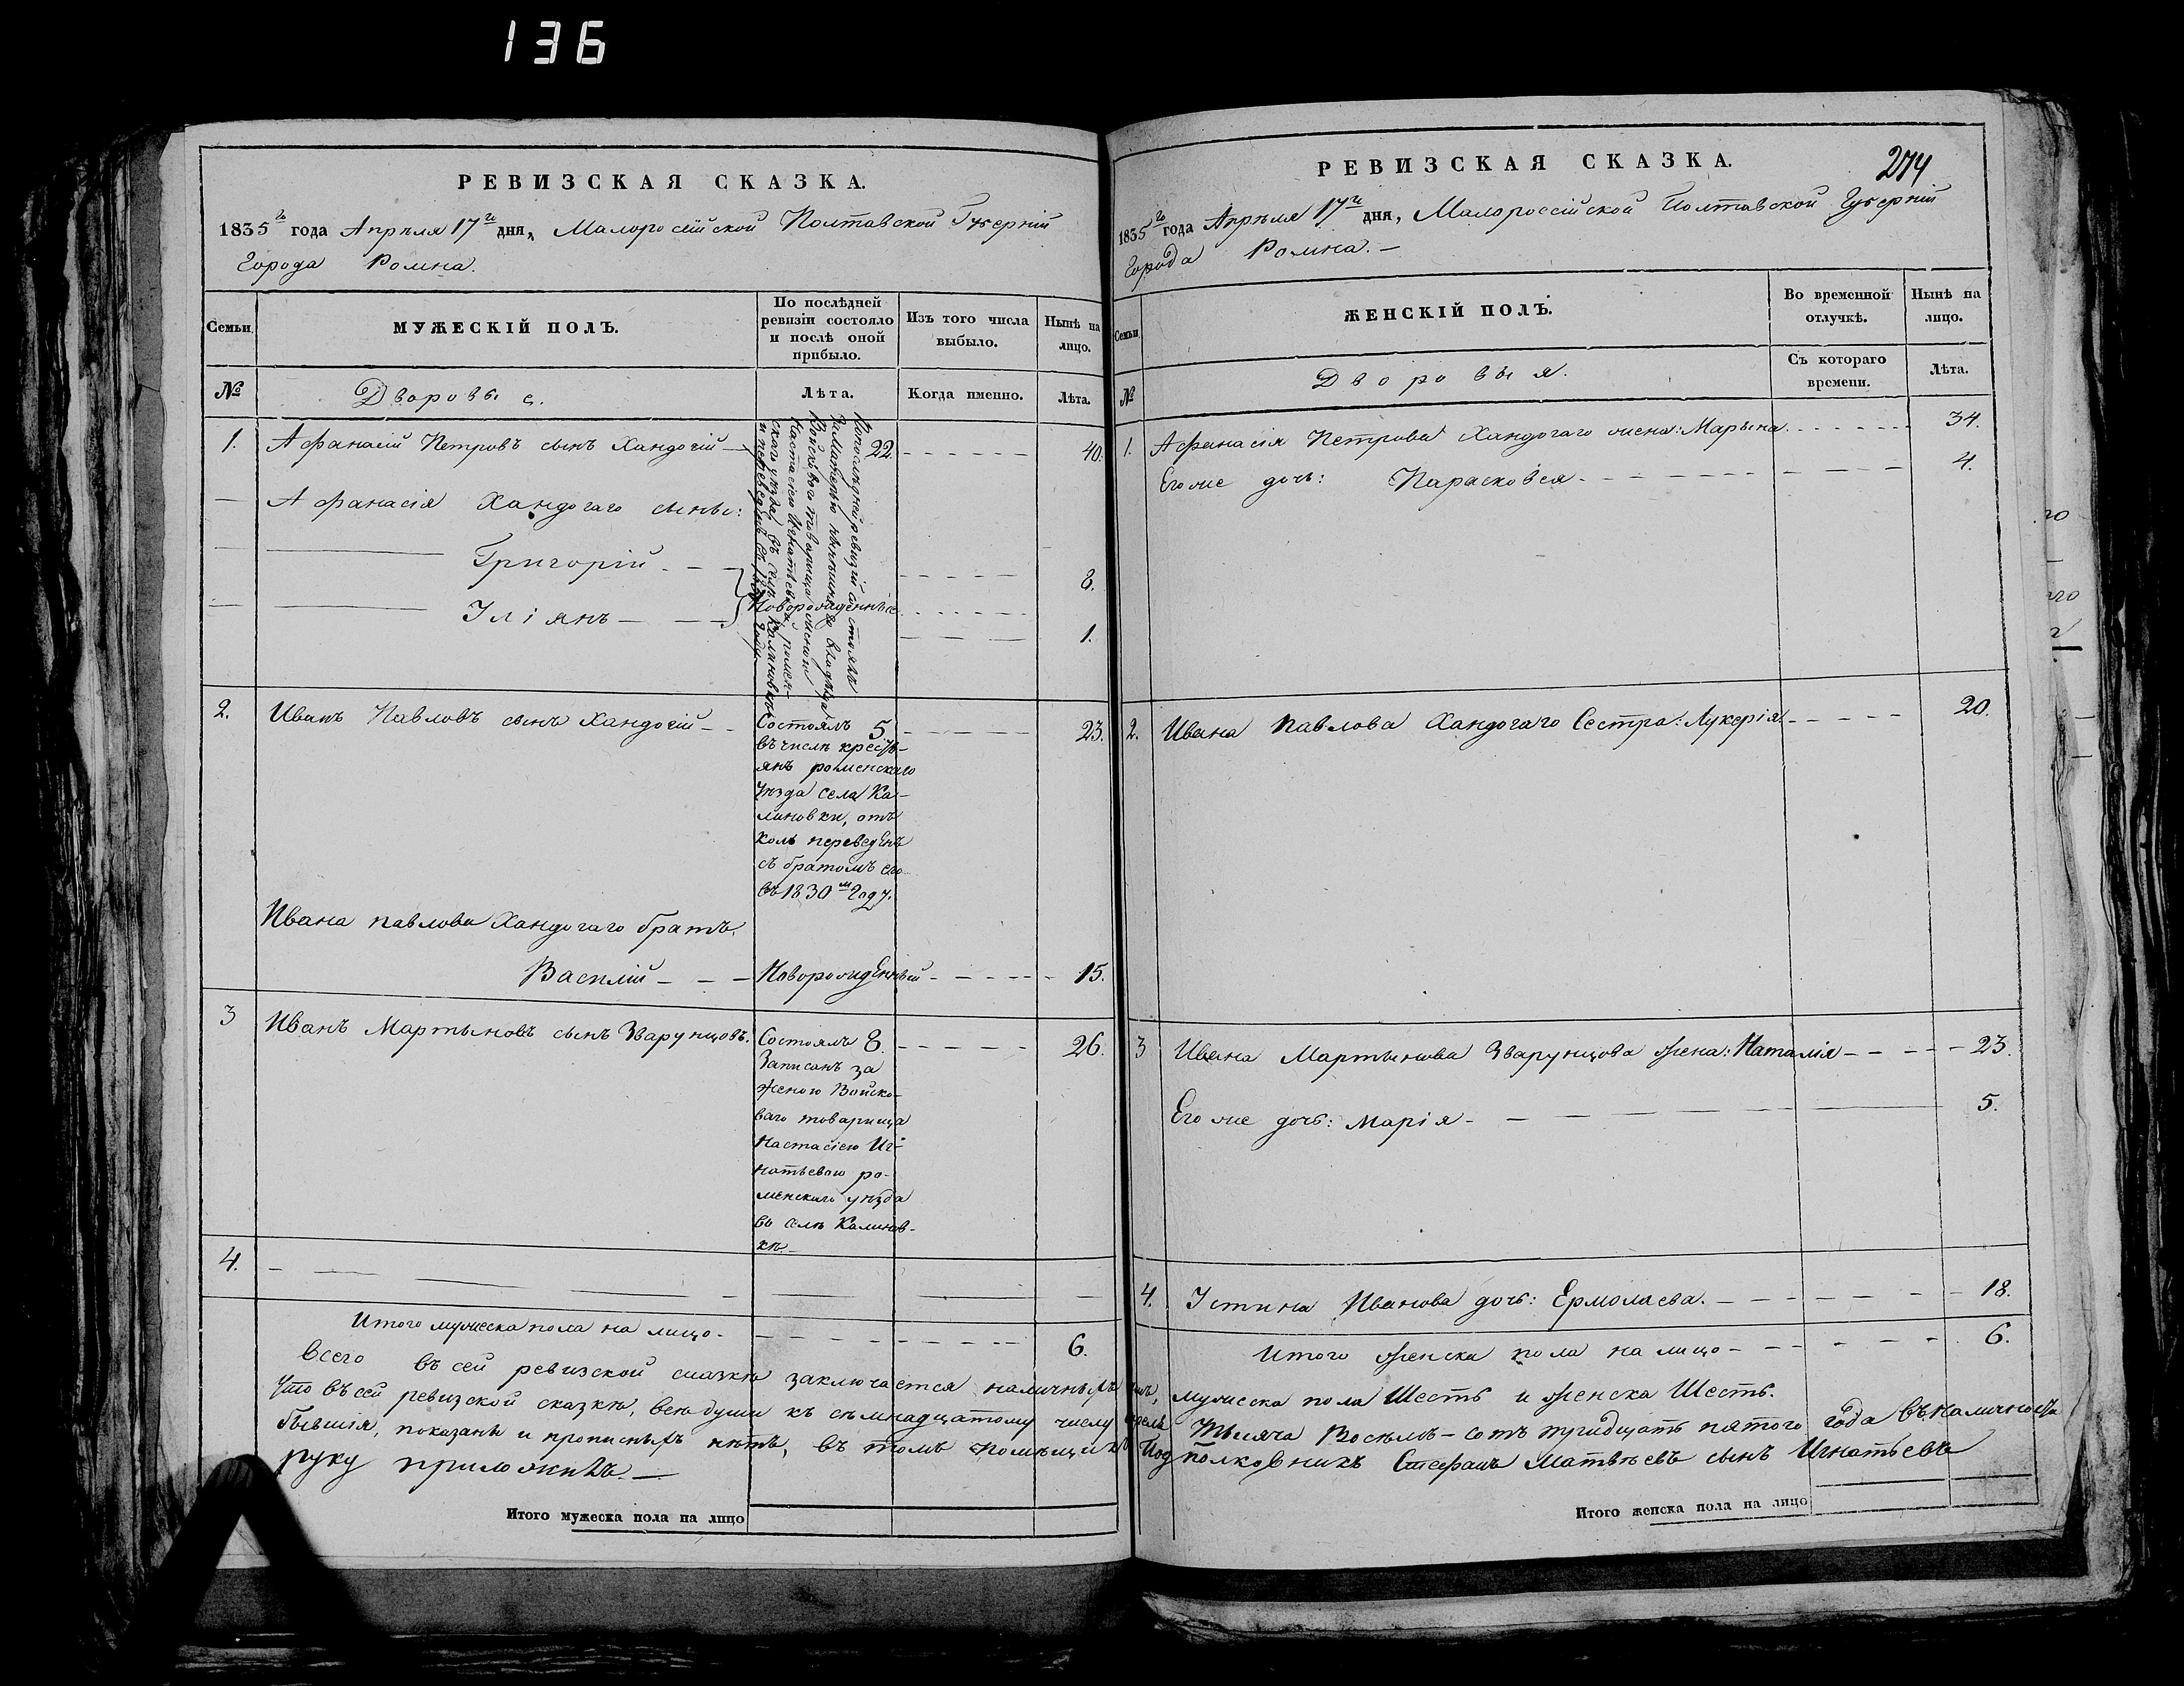 136
РЕВИЗСКАЯ СКАЗКА.
1835го года Апрѣля 17го дня, Малоросійской Полтавской Губерніи
Города Ромна.
Семьи
МУЖЕСКІЙ ПОЛЪ.
По послѣдней ревизіи состояло и послѣ оной прибыло.
Изъ того числа выбыло.
Нынѣ на лицо.
№
Дворовые.
Лѣта.
Когда именно.
Лѣта.
1. Афанасій Петровъ сынъ Хандогій 22. 40.
По послѣдней ревизіи состоялъ
войсковаго товарища женою
Настасіею Игнатьевою, ромен-
скаго уѣзда, въ селѣ Калиновкѣ
Афанасія Хандогаго сыны:
Григорій 8.
Новорожденные
Іліянъ 1.
2. Иванъ Павловъ сынъ Хандогій 5 23.
Состоялъ
въ числѣ кресть-
янъ роменскаго
уѣзда села Ка-
линовки, отъ
коль переведенъ
съ братомъ его
въ 1830м году.
Ивана павлова Хандогаго братъ.
Василій Новорожденный 15.
3 Иванъ Мартыновъ сынъ Зварунцовъ. Состоялъ 8. 26.
Записанъ за
женою Войско-
ваго товарища
Настасіею Иг-
натьевою ро-
менскаго уѣзда
въ селѣ Калинов-
кѣ
4.
Итого мужеска пола на лицо 6.
Всего въ сей ревизской сказкѣ заключается наличныхъ
Что въ сей ревизской сказкѣ, всѣ души къ семнадцатому числу
бывшія, показаны и прописныхъ нѣтъ, въ томъ помѣщикъ
руку приложилъ.
Итого мужеска пола на лицо
РЕВИЗСКАЯ СКАЗКА.
274
1835го года Апрѣля 17го дня, Малороссійской Полтавской Губерніи
Города Ромна.
Семьи
ЖЕНСКІЙ ПОЛЪ.
Во временной отлучкѣ.
Нынѣ на лицо.
№
Дворовыя.
Съ котораго времени.
Лѣта.
1. Афанасія Петрова Хандогаго жена: Марьина 34.
Его же дочь: Парасковія 4.
2. Ивана Павлова Хандогаго Сестра: Лукерія 20.
3 Ивана Мартынова Зварунцова жена: Наталія 23.
Его же дочь: Марія 5.
4. Устина Иванова дочь: Ермолаева. 18.
Итого женска пола на лицо 6.
мужеска пола Шесть и женска Шесть.
Тысяча Восемь-сотъ тридцать пятого года въ наличности
Подполковникъ Стефанъ Матвѣевъ сынъ Игнатьевъ
Итого женска пола на лицо